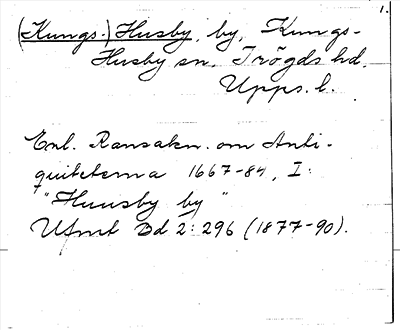 1.
(Kungs-) Husby, by, Kungs-
Husby sn. Trögds hd.
Upps. l.
Enl. Ransakn. om Anti-
quiteterna 1667-84, I:
"Huusby by"
UFmt Bd 2: 296 (1877-90).